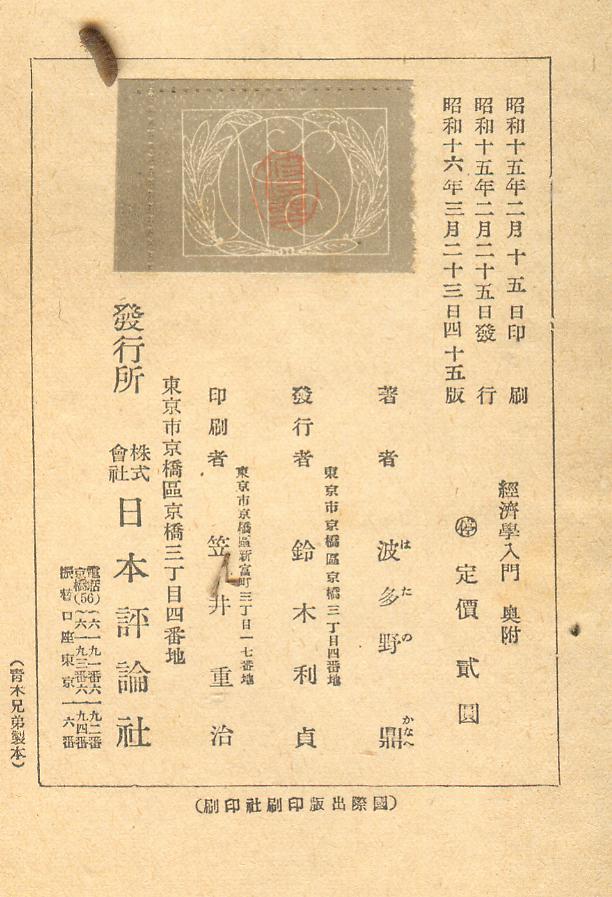 昭和十五年二月十五日印刷
昭和十五年二月二十五日發行
昭和十六年三月二十三日四十五版
經濟學入門 奧附
停 定價貳圓
著者 波多野鼎
はたの かなへ
東京市京橋區京橋三丁目四番地
發行者 鈴木利貞
東京市京橋區新富町三丁目一七番地
印刷者 笠井重治
東京市京橋區京橋三丁目四番地
發行所 株式會社 日本評論社
電話京橋(56)
六一九一番 六一九二番
六一九三番 六一九四番
振替口座東京一六番
(靑木兄弟製本)
(國際出版印刷社印刷)